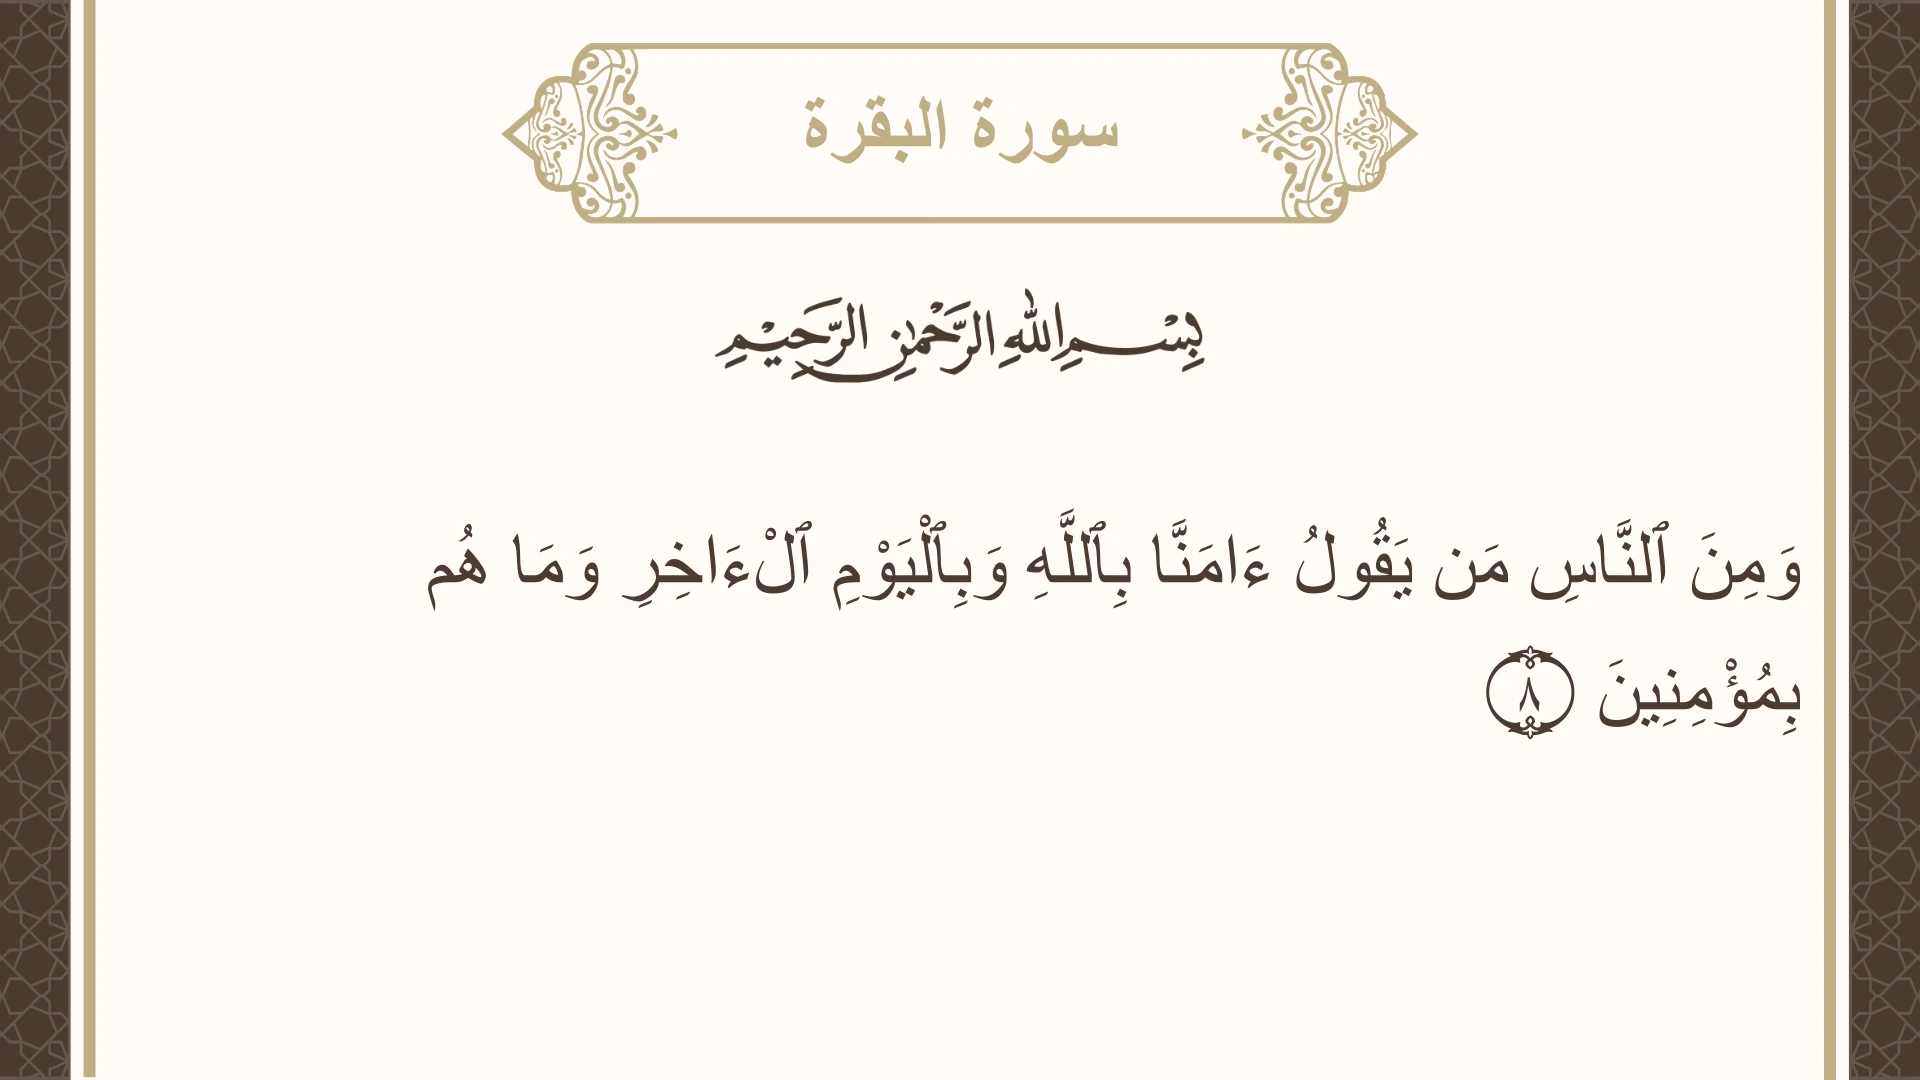 سورة البقرة
بِسْمِ اللهِ الرَّحْمٰنِ الرَّحِيْمِ
وَمِنَ ٱلنَّاسِ مَن يَقُولُ ءَامَنَّا بِٱللَّهِ وَبِٱلْيَوْمِ ٱلْءَاخِرِ وَمَا هُم
بِمُؤْمِنِينَ ٨